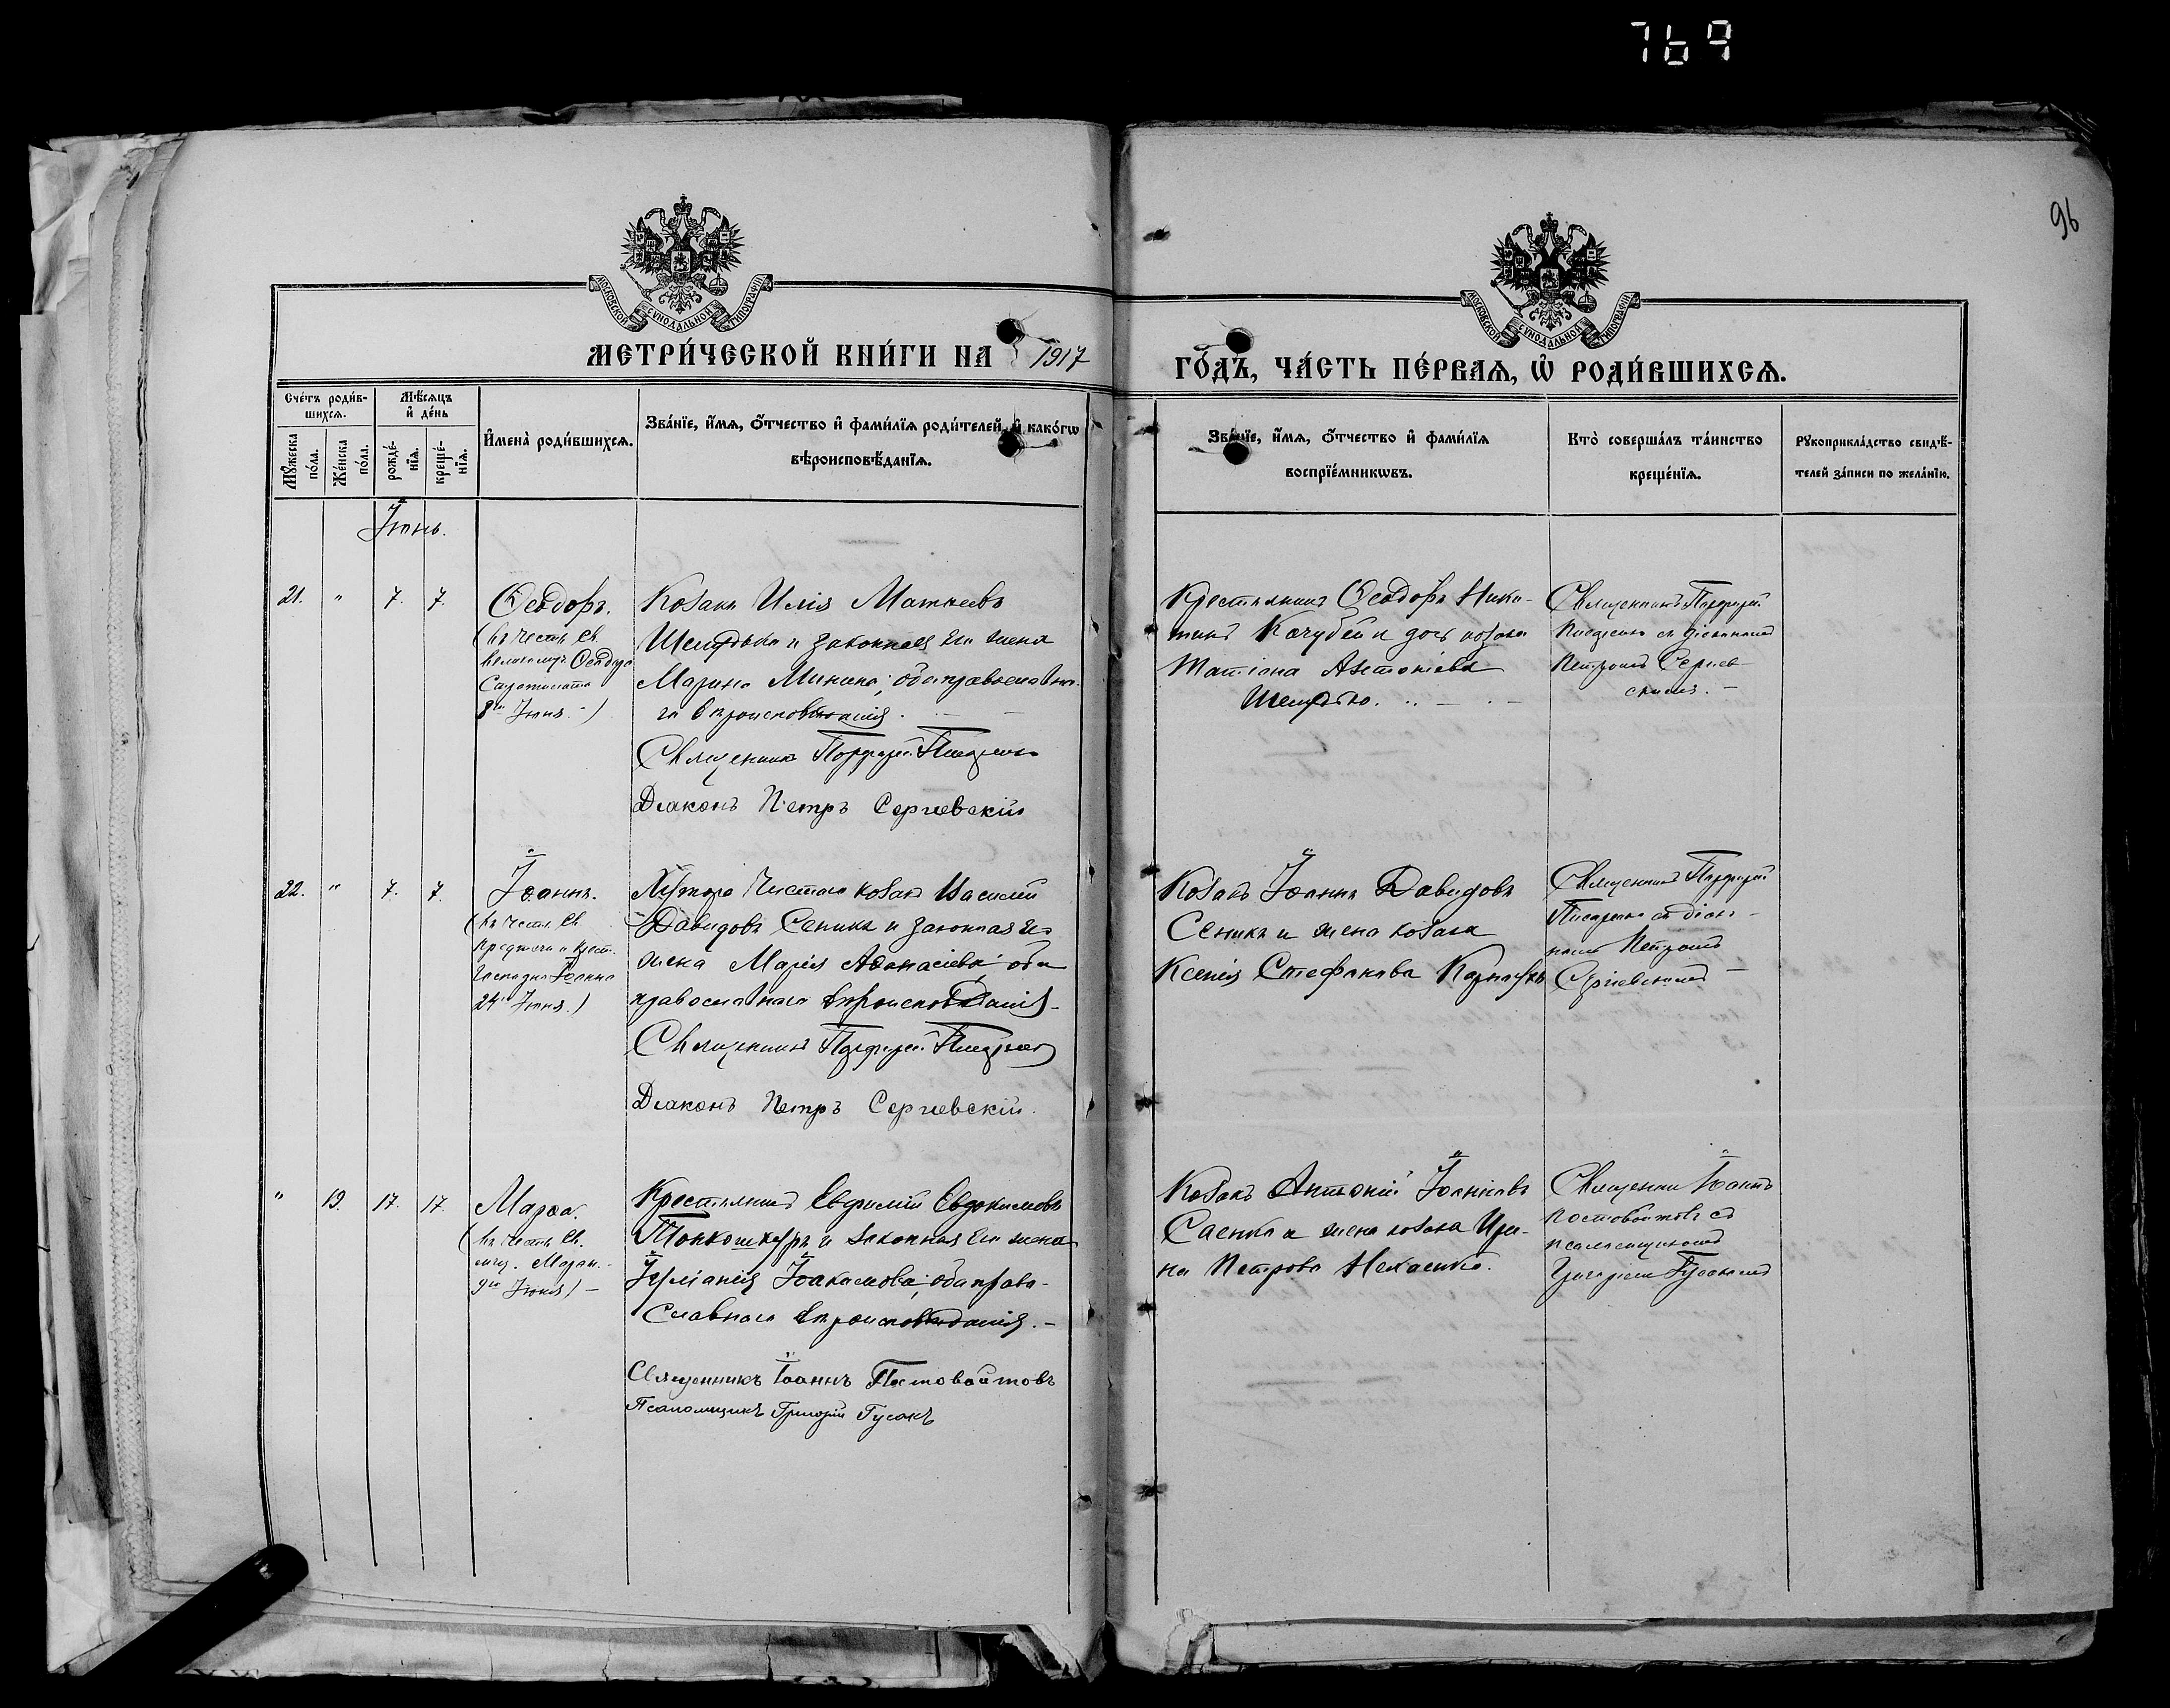 769
96
МОСКОВСКОЙ СѴНОДАЛЬНОЙ ТИПОГРАФІИ
МОСКОВСКОЙ СѴНОДАЛЬНОЙ ТИПОГРАФІИ
МЕТРИ́ЧЕСКОЙ КНИ́ГИ НА 1917
ГО́ДЪ, ЧА́СТЬ ПЕ́РВАѦ, Ѡ҆ РОДИ́ВШИХСѦ.
Сче́тъ роди́в-
шихсѧ.
Мѣ́сѧцъ
и҆ де́нь
Мꙋ́жеска
по́ла.
Же́нска
по́ла.
рожде́-
нїѧ.
креще́-
нїѧ.
И҆мена̀ роди́вшихсѧ.
Зва́нїе, и҆́мѧ, ѻ҆́тчество и҆ фами́лїѧ роди́телей, и҆ како́гѡ
вѣроисповѣ́данїѧ.
Зва́нїе, и҆́мѧ, ѻ҆́тчество и҆ фами́лїѧ
воспрїе́мникѡвъ.
Кто̀ соверша́лъ та́инство
креще́нїѧ.
Рꙋкоприкла́дство свидѣ́-
телей за́писи по жела́нїю.
Іюнь.
21. " 7. 7.
Ѳеодоръ.
(въ честь св.
Ѳеодора
8го Іюня. -)
Козакъ Илія Матвеевъ
и законная его жена
Марина Минина, оба православна-
го вѣроисповѣданія.
Священникъ Порфирій Писаренко
Діаконъ Петръ Сергіевскій
Крестьянинъ Ѳеодоръ Ники-
тинъ Кочубей и дочь козака
Татіана Антоніева
Священникъ Порфирій
Писаренко съ діакономъ
Петромъ Сергіев-
скимъ. -
22. " 7. 7.
Іоаннъ.
(въ честь св.
Предтечи и Крест.
Господня Іоанна
24 Іюня.)
Хутора Чистого козакъ Василій
Давидовъ Сеникъ и законная его
жена Марія Аѳанасіева, оба
православнаго вѣроисповѣданія.
Священникъ Порфирій Писаренко
Діаконъ Петръ Сергіевскій.
Козакъ Іоаннъ Давидовъ
Сеникъ и жена козака
Ксенія Стефанова
Священникъ Порфирій
Писаренко съ діако-
номъ Петромъ
Сергіевскимъ -
" 19. 17. 17.
Марѳа.
(въ честь св.
мч.
9го Іюня) -
Крестьянинъ Евфимій Евдокимовъ
и законная его жена
Іуліанія Іоакимова, оба право-
славнаго вѣроисповѣданія. -
Священникъ Іоаннъ Постовойтовъ
Псаломщикъ Григорій Гусакъ
Козакъ Антоній Іоанновъ
Саенко и жена козака Ири-
на Петрова
Священник Іоаннъ
Постовойтовъ съ
псаломщикомъ
Григоріем Гусакомъ